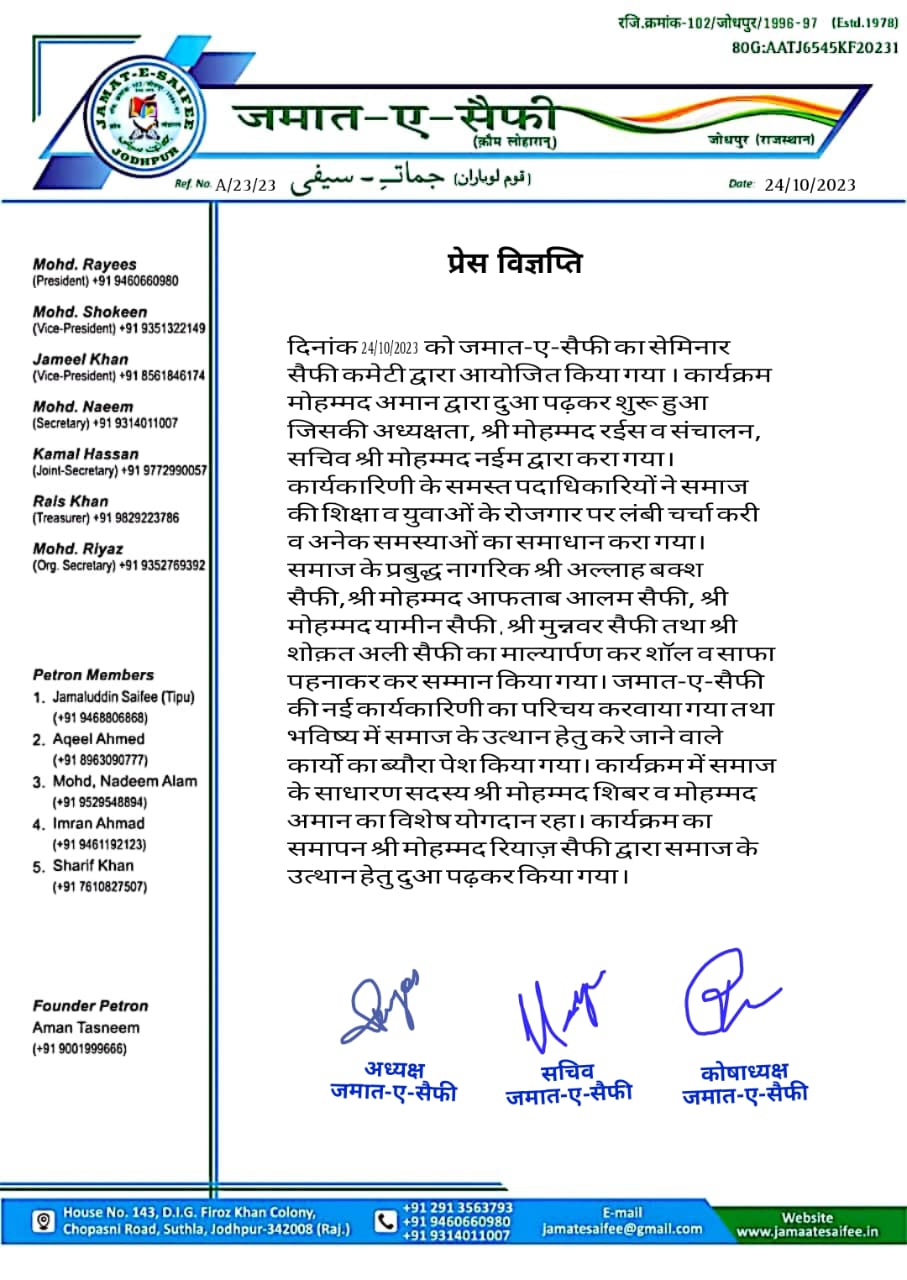 रजि.क्रमांक-102/जोधपुर/1996-97 (Estd.1978)
80G:AATJ6545KF20231
JAMAT-E-SAIFEE
JODHPUR
जमात-ए-सैफी
(क़ौम लोहारान्)
जोधपुर (राजस्थान)
Ref. No. A/23/23
جماتِ - سیفی (قوم لوہاران)
Date: 24/10/2023
Mohd. Rayees
(President) +91 9460660980
Mohd. Shokeen
(Vice-President) +91 9351322149
Jameel Khan
(Vice-President) +91 8561846174
Mohd. Naeem
(Secretary) +91 9314011007
Kamal Hassan
(Joint-Secretary) +91 9772990057
Rais Khan
(Treasurer) +91 9829223786
Mohd. Riyaz
(Org. Secretary) +91 9352769392
Petron Members
1. Jamaluddin Saifee (Tipu)
(+91 9468806868)
2. Aqeel Ahmed
(+91 8963090777)
3. Mohd, Nadeem Alam
(+91 9529548894)
4. Imran Ahmad
(+91 9461192123)
5. Sharif Khan
(+91 7610827507)
Founder Petron
Aman Tasneem
(+91 9001999666)
प्रेस विज्ञप्ति
दिनांक 24/10/2023 को जमात-ए-सैफी का सेमिनार
सैफी कमेटी द्वारा आयोजित किया गया । कार्यक्रम
मोहम्मद अमान द्वारा दुआ पढ़कर शुरू हुआ
जिसकी अध्यक्षता, श्री मोहम्मद रईस व संचालन,
सचिव श्री मोहम्मद नईम द्वारा करा गया।
कार्यकारिणी के समस्त पदाधिकारियों ने समाज
की शिक्षा व युवाओं के रोजगार पर लंबी चर्चा करी
व अनेक समस्याओं का समाधान करा गया।
समाज के प्रबुद्ध नागरिक श्री अल्लाह बक्श
सैफी,श्री मोहम्मद आफताब आलम सैफी, श्री
मोहम्मद यामीन सैफी, श्री मुन्नवर सैफी तथा श्री
शोक़त अली सैफी का माल्यार्पण कर शॉल व साफा
पहनाकर कर सम्मान किया गया। जमात-ए-सैफी
की नई कार्यकारिणी का परिचय करवाया गया तथा
भविष्य में समाज के उत्थान हेतु करे जाने वाले
कार्यो का ब्यौरा पेश किया गया। कार्यक्रम में समाज
के साधारण सदस्य श्री मोहम्मद शिबर व मोहम्मद
अमान का विशेष योगदान रहा। कार्यक्रम का
समापन श्री मोहम्मद रियाज़ सैफी द्वारा समाज के
उत्थान हेतु दुआ पढ़कर किया गया।
अध्यक्ष
जमात-ए-सैफी
सचिव
जमात-ए-सैफी
कोषाध्यक्ष
जमात-ए-सैफी
House No. 143, D.I.G. Firoz Khan Colony,
Chopasni Road, Suthla, Jodhpur-342008 (Raj.)
+91 291 3563793
+91 9460660980
+91 9314011007
E-mail
jamatesaifee@gmail.com
Website
www.jamaatesaifee.in